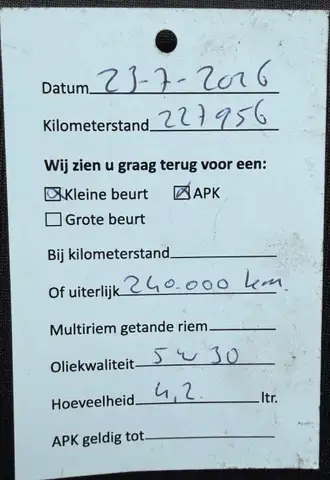 Datum 23-7-2026
Kilometerstand 227956
Wij zien u graag terug voor een:
☒ Kleine beurt ☒ APK
☐ Grote beurt
Bij kilometerstand
Of uiterlijk 240.000 km.
Multiriem getande riem
Oliekwaliteit 5w30
Hoeveelheid 4,2 ltr.
APK geldig tot